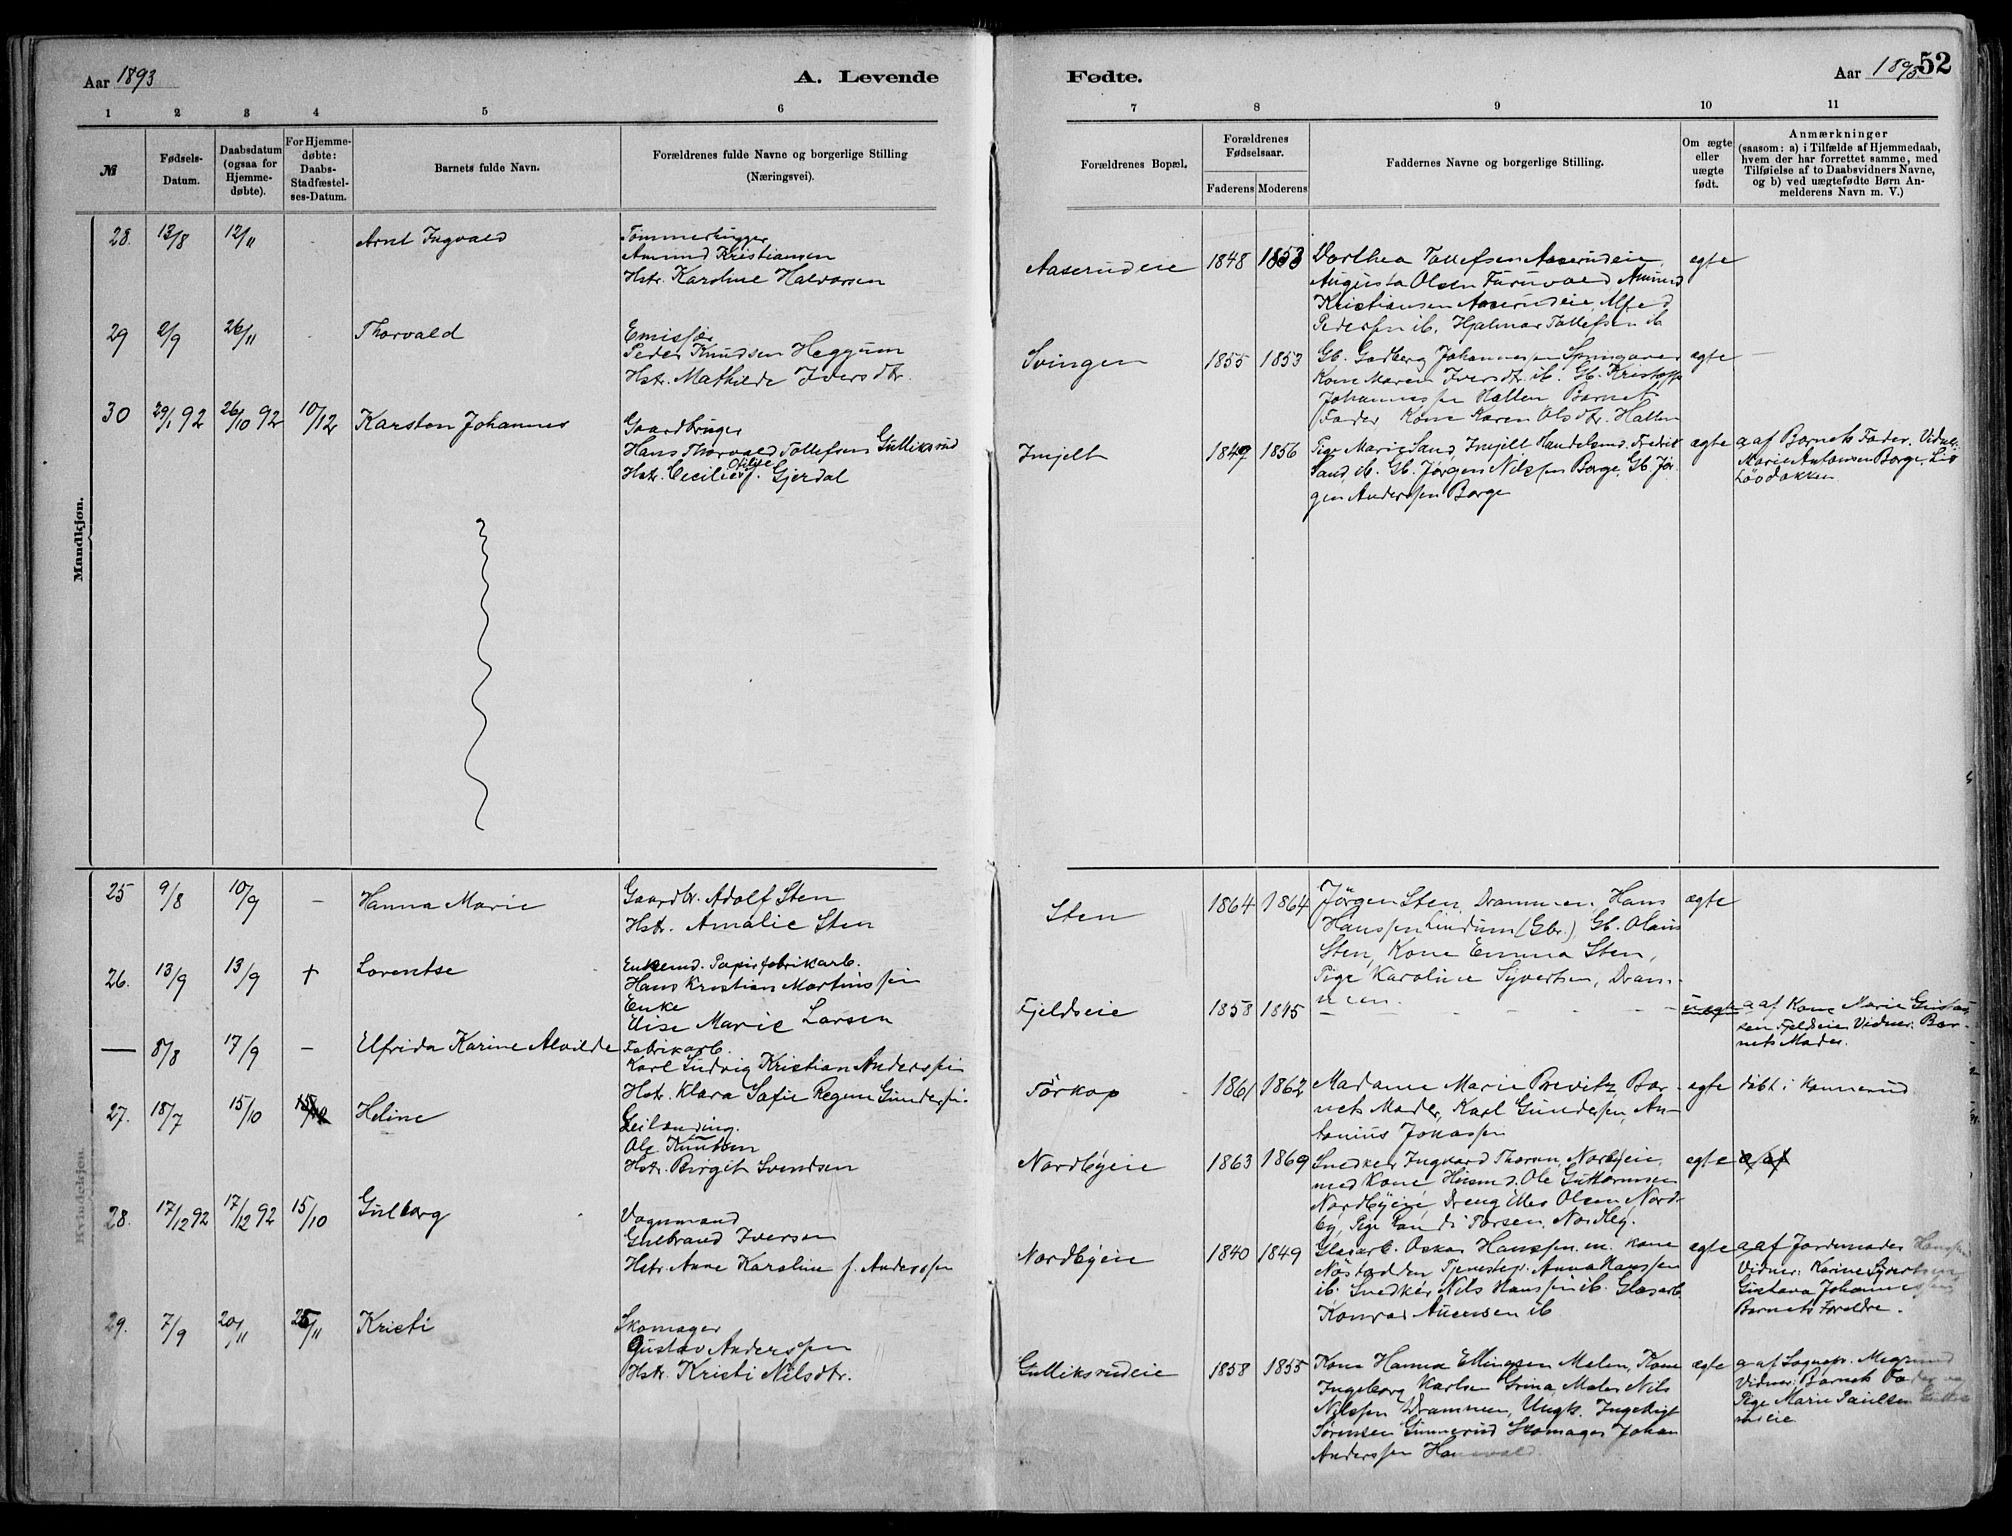 Aar 1893
A. Levende
Fødte.
Aar 1893
52
1 2 3 4 5 6 7 8 9 10 11
№
Fødsels-
Datum.
Daabsdatum
(ogsaa for
Hjemme-
døbte).
For Hjemme-
døbte:
Daabs-
Stadfæstel-
ses-Datum.
Barnets fulde Navn.
Forældrenes fulde Navne og borgerlige Stilling
(Næringsvei).
Forældrenes Bopæl.
Forældrenes
Fødselsaar.
Faderens Moderens
Faddernes Navne og borgerlige Stilling.
Om ægte
eller
uægte
født.
Anmærkninger
(saasom: a) i Tilfælde af Hjemmedaab,
hvem der har forrettet samme, med
Tilføielse af to Daabsvidners Navne,
og b) ved uægtefødte Børn An-
melderens Navn m. V.)
Mandkjøn.
28. 13/8 12/11 - Arnt Ingvald
Tømmerhugger
Amund Kristiansen
Hstr. Karoline Halvorsen
Aaserudeie 1848 1853
Dorthea Tollefsen Aaserudeie,
Augusta Olsen Furuvald, Amund
Kristiansen Aaserudeie, Alfred
Pedersen ib. Hjalmar Tollefsen ib
egte
29 2/9 26/11 - Thorvald
Emissær
Peder Knudsen Heggum
Hstr. Mathilde Iversdtr.
Svingen 1855 1853
Gb. Gudberg Johannessen
Kone Maren Iversdtr. ib. Gb. Kristoffer
Johannessen Hallen Barnets
Fader Kone Karen Olsdtr. Hallen
egte -
30 29/1 92 26/10 92 10/12 Karsten Johannes
Gaardbruger
Hans Thorvald Tollefsen Gulliksrud
Hstr. Cecilie Otilie f. Gjerdal
Imjelt 1847 1856
Pige Marie Sand, Imjelt Handelsmd. Fredrik
Sand, ib. Gb. Jørgen Nilssen Borge, Gb. Jør-
gen Anderssen Borge
egte
a af Barnets Fader. Vidn.:
Marie Antonsen Borge,
Løvdokken
Kvindekjøn.
25 9/8 10/9 - Hanna Marie
Gaardbr. Adolf Sten
Hstr. Amalie Sten
Sten 1864 1864
Jørgen Sten, Drammen, Hans
Hanssen Lindum (Gbr.), Gb. Olaus
Sten, Kone Emma Sten,
Pige Karoline Syvertsen, Dram-
men.
ægte
26. 13/9 13/9 + Lorentse
Enkemd. Papirfabrikarb.
Hans Kristian Martinssen
Enke
Elise Marie Larsen
Fjeldseie 1858 1845 - - - - - -
uegte
a af Kone Marie Gustav-
sen Fjeldseie. Vidner: Bar-
nets Moder.
— 8/8 17/9 - Elfrida Karine Alvilde
Fabrikarb.
Karl Ludvig Kristian Anderssen
Hstr. Klara Sofie Regine Gunderssen
Tørkop 1861 1862
Madame Marie Brevitz, Bar-
nets Moder, Karl Gundersen, An-
tonius Johassen
egte
døbt i Konnerud
27. 18/7 15/10 Heline
Leilænding.
Ole Knutsen
Hstr. Birgit Svendsen
Nordbyeie 1863 1869
Snedker Ingvard Thorsen, Nordbyeie,
med Kone Husmd. Ole Guttormsen
Nordbyeie, Dreng Olsen, Nord-
by, Pige Torsen, Nordby.
egte
a af
28. 17/12 92 17/12 92 15/10 Gulborg
Vognmand
Gulbrand Iversen
Hstr. Anne Karoline f. Anderssen
Nordbyeie 1840 1849
Glasarb. Oskar Hanssen m. Kone
Nøstodden Tjenestep. Anna Hanssen
ib. Snedker Nils Hanssen ib. Glasarb.
Konrad ib
egte
a af Jordemoder Hanssen
Vidner: Karine Syvertsen,
Gustava Johannessen,
Barnets Forældre.
29. 7/9 20/11 25/11 Kristi
Skomager
Gustav Anderssen
Hstr. Kristi Nilsdtr.
Gulliksrudeie 1858 1855
Kone Hanna Ellingsen Molen, Kone
Ingeborg Karlsen Grina, Maler Nils
Nilssen Drammen, Ungk. Ingebrigt
Sørensen Gunnerud Skomager Johan
Anderssen
egte
a af Sognepr.
Vidner: Barnets Fader og
Pige Marie Paulsen